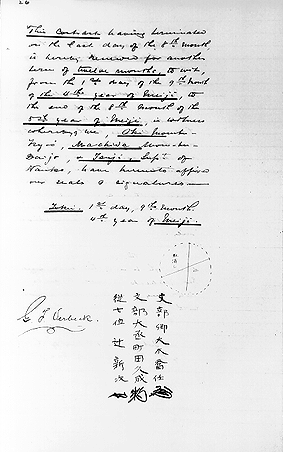 26
This Contract having terminated
on the last day of the 8th month
is hereby renewed for another
term of twelve months, to wit,
from the 1st day of the 9th month
of the 4th year of Meiji, to
the end of the 8th month of the
5th year of Meiji, in witness
whereof we, Oki Monb-
Kiyo, Machida Monbu-
Daijo, & Tsuji, Supt. of
Nanko, have hereunto affixed
our seals & signatures
Tokei, 1st day, 9th month
4th year of Meiji.
G F Verbeck.
文部卿大木喬任
文部大丞町田久成
從七位 辻 新次